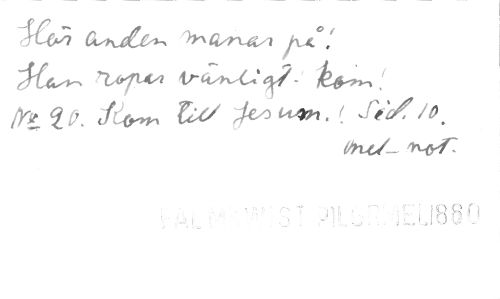 Hör anden manar på!
Han ropar vänligt: kom!
No 20. Kom till Jesum.! Sid. 10.
mel-not.
PALMQVIST PILGR 1880